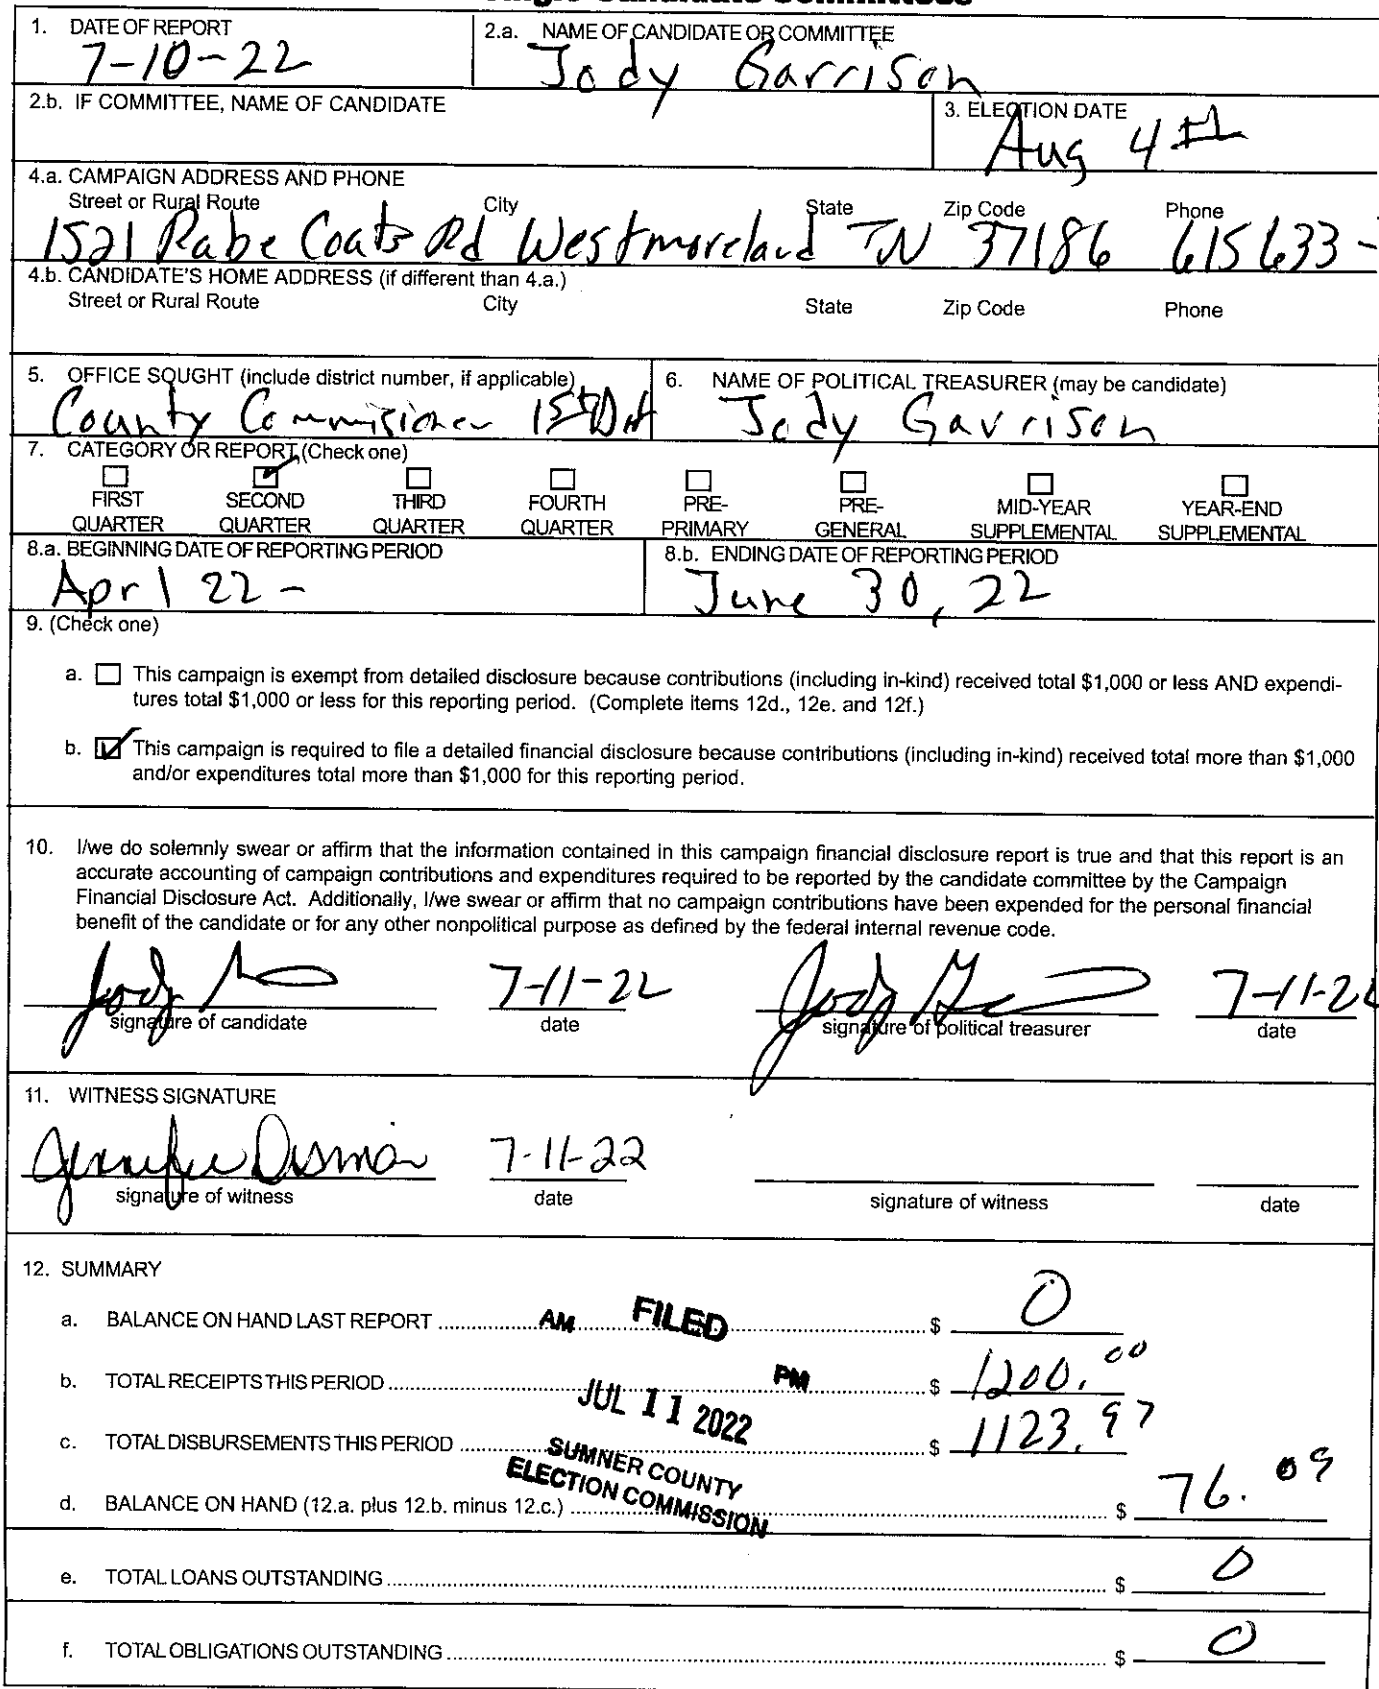 1. DATE OF REPORT
7-10-22
2.a. NAME OF CANDIDATE OR COMMITTEE
Jody Garrison
2.b. IF COMMITTEE, NAME OF CANDIDATE
3. ELECTION DATE
Aug 4th
4.a. CAMPAIGN ADDRESS AND PHONE
Street or Rural Route City State Zip Code Phone
1521 Rabe Coats Rd Westmoreland TN 37186 615 633-
4.b. CANDIDATE'S HOME ADDRESS (if different than 4.a.)
Street or Rural Route City State Zip Code Phone
5. OFFICE SOUGHT (include district number, if applicable)
County Commisioner 1st
6. NAME OF POLITICAL TREASURER (may be candidate)
Jody Garrison
7. CATEGORY OR REPORT (Check one)
FIRST QUARTER
SECOND QUARTER
THIRD QUARTER
FOURTH QUARTER
PRE-PRIMARY
PRE-GENERAL
MID-YEAR SUPPLEMENTAL
YEAR-END SUPPLEMENTAL
8.a. BEGINNING DATE OF REPORTING PERIOD
Aprl 22 -
8.b. ENDING DATE OF REPORTING PERIOD
June 30, 22
9. (Check one)
a. This campaign is exempt from detailed disclosure because contributions (including in-kind) received total $1,000 or less AND expendi-
tures total $1,000 or less for this reporting period. (Complete items 12d., 12e. and 12f.)
b. This campaign is required to file a detailed financial disclosure because contributions (including in-kind) received total more than $1,000
and/or expenditures total more than $1,000 for this reporting period.
10. I/we do solemnly swear or affirm that the information contained in this campaign financial disclosure report is true and that this report is an
accurate accounting of campaign contributions and expenditures required to be reported by the candidate committee by the Campaign
Financial Disclosure Act. Additionally, I/we swear or affirm that no campaign contributions have been expended for the personal financial
benefit of the candidate or for any other nonpolitical purpose as defined by the federal internal revenue code.
Jody 7-11-22 Jody 7-11-22
signature of candidate date signature of political treasurer date
11. WITNESS SIGNATURE
Jennifer 7-11-22
signature of witness date signature of witness date
12. SUMMARY
a. BALANCE ON HAND LAST REPORT $ 0
b. TOTAL RECEIPTS THIS PERIOD $ 1200.00
c. TOTAL DISBURSEMENTS THIS PERIOD $ 1123.97
d. BALANCE ON HAND (12.a. plus 12.b. minus 12.c.) $ 76.09
AM FILED PM
JUL 11 2022
SUMNER COUNTY
ELECTION COMMISSION
e. TOTAL LOANS OUTSTANDING $ 0
f. TOTAL OBLIGATIONS OUTSTANDING $ 0